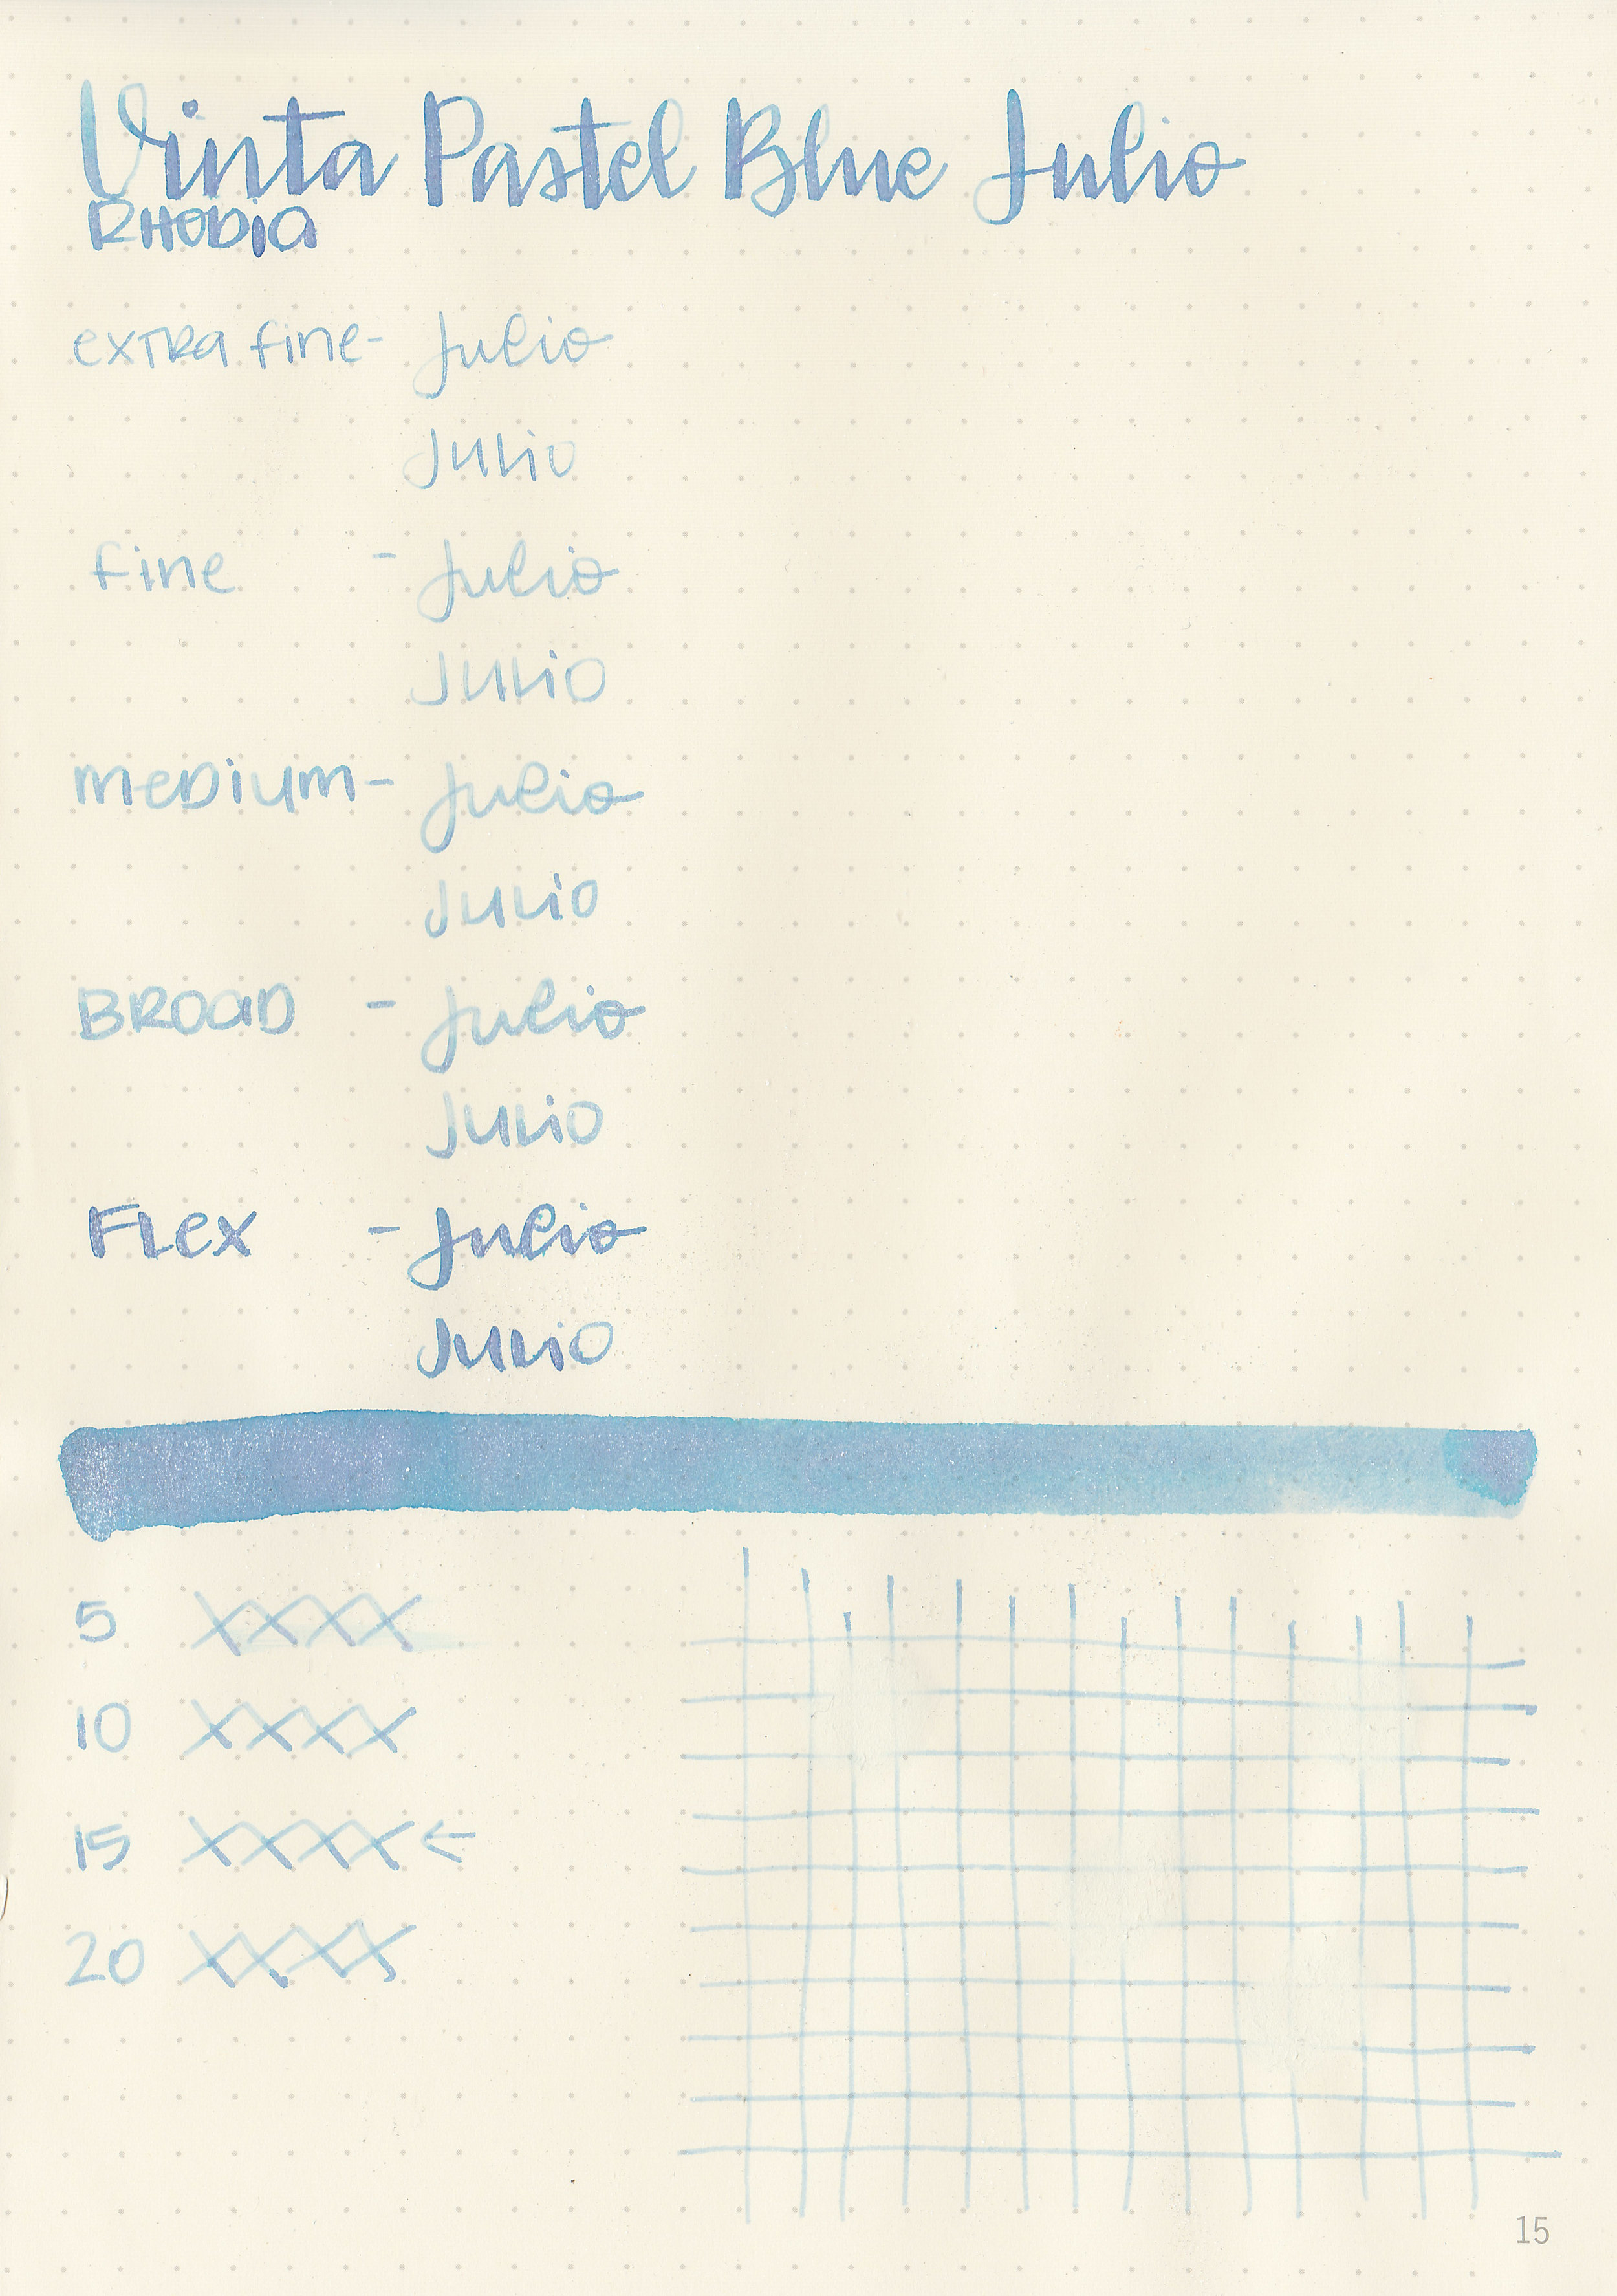 Vinta Pastel Blue Julio
RHODIA
extra fine - Julio
Julio
fine - Julio
Julio
medium - Julio
Julio
BROAD - Julio
Julio
Flex - Julio
Julio
5 XXXX
10 XXXX
15 XXXX ←
20 XXXX
15